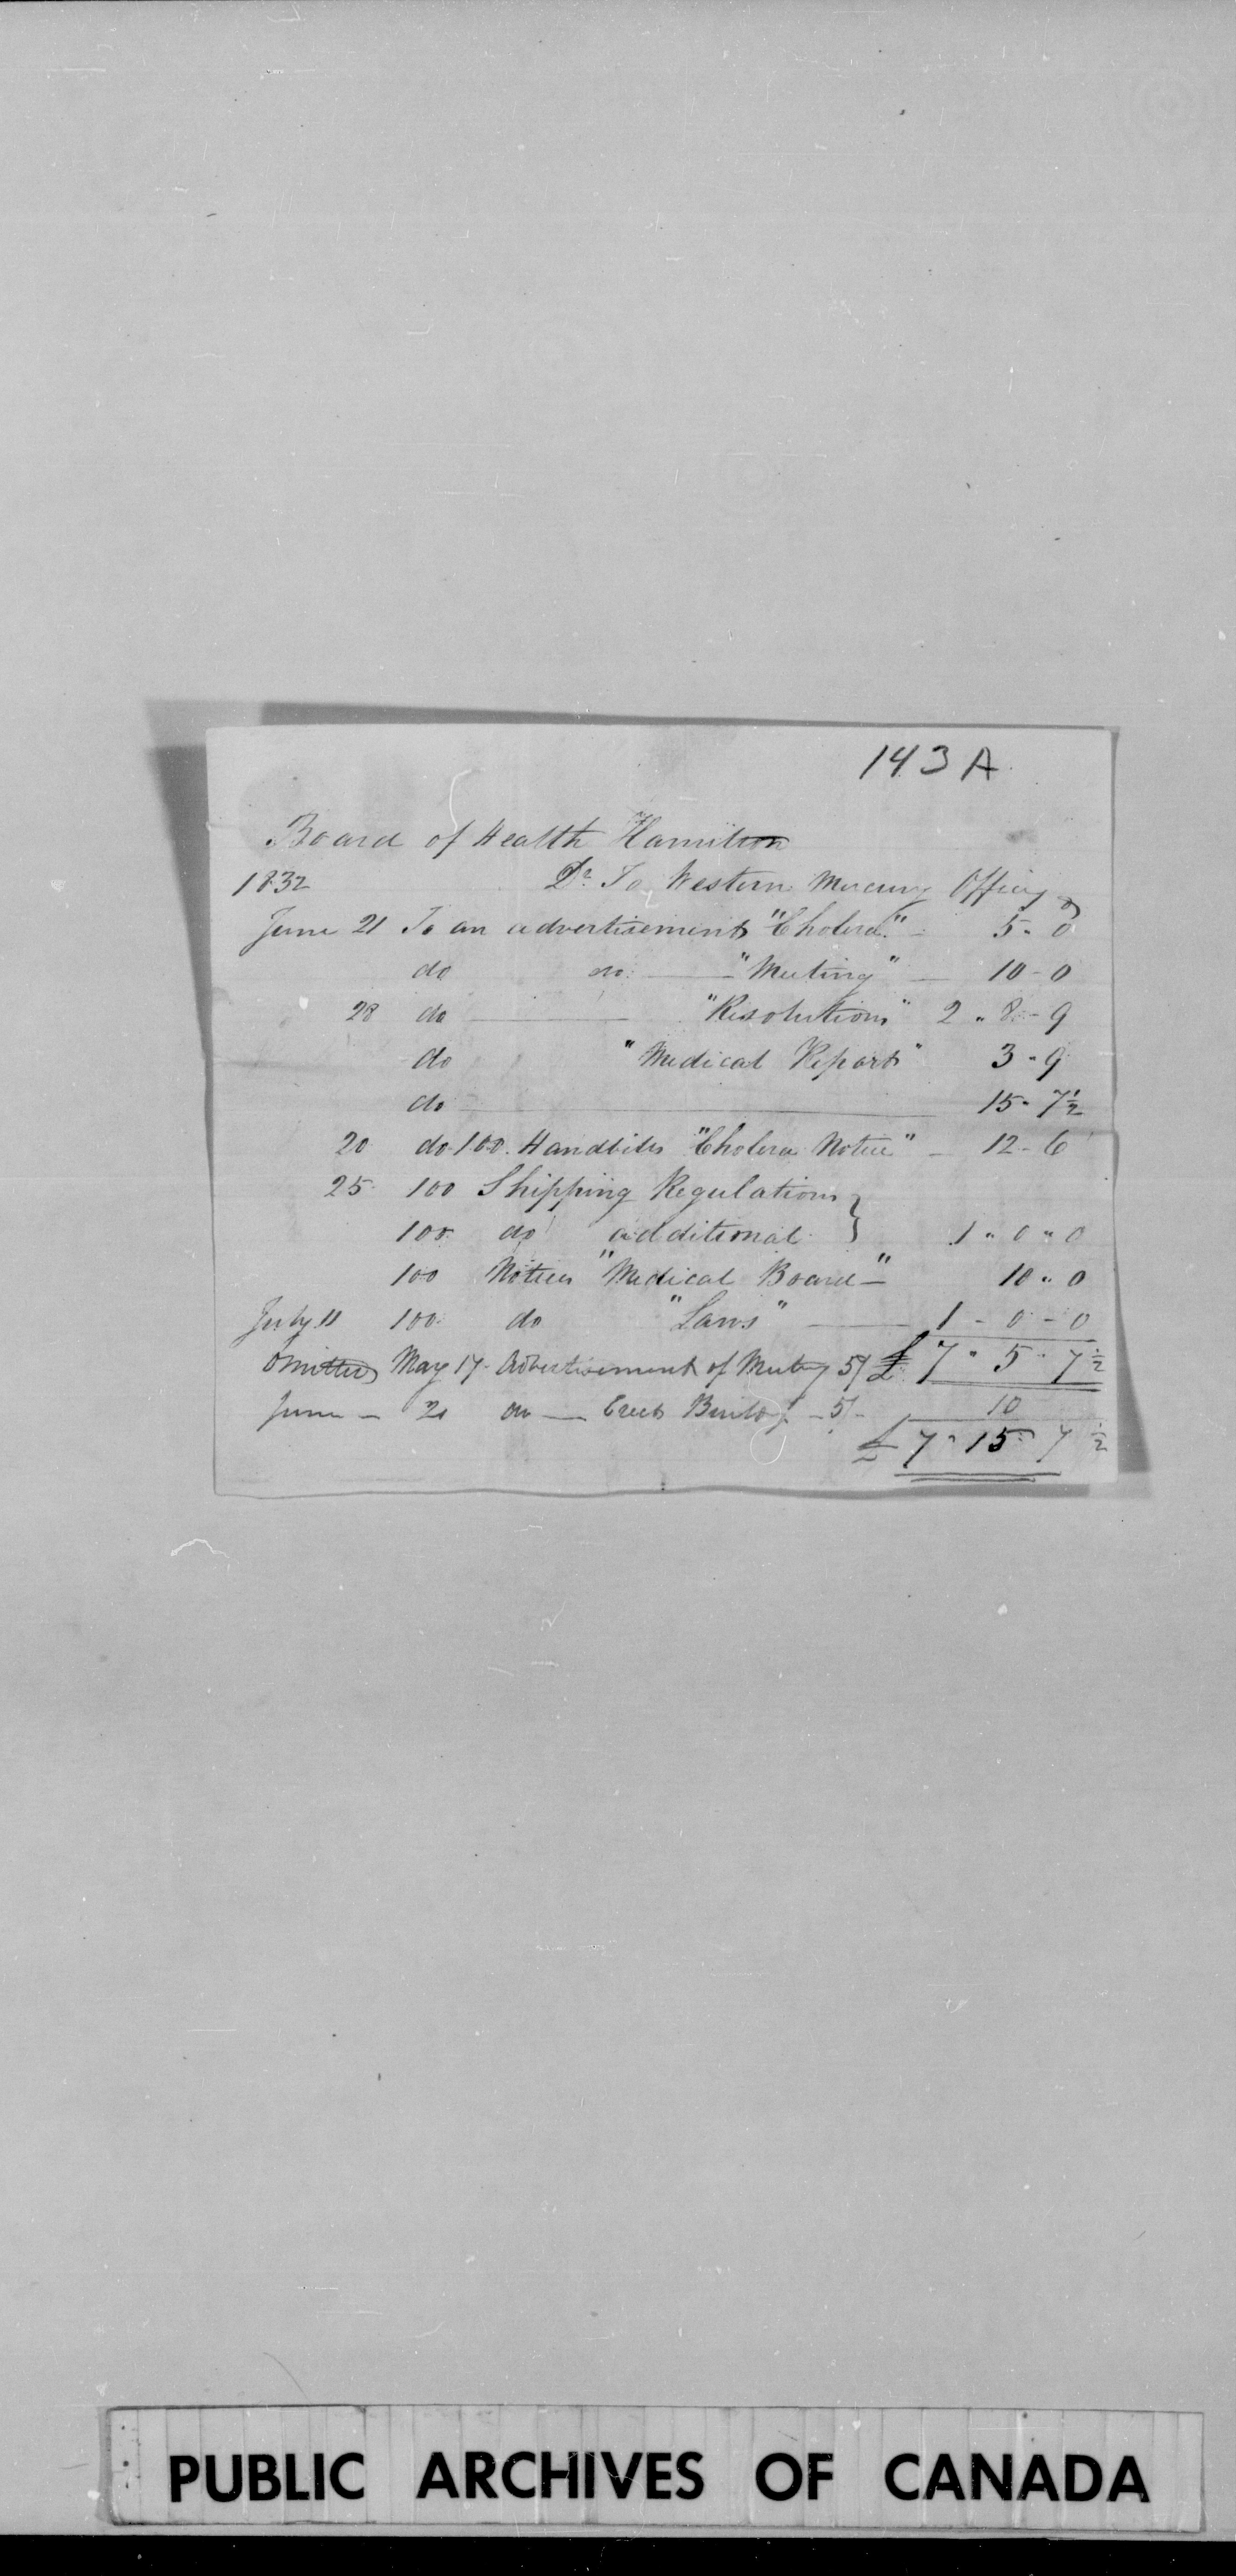 143 A
Board of Health Hamilton
1832 Dr To Western Mercury Office
June 21 To an advertisement "Cholera" - 5 - 0
do do "Meeting" - 10 - 0
28 do "Resolutions" 2 " 8 - 9
do "Medical Report" 3 " 9
do 15 - 7 1/2
20 do 100 Handbills "Cholera Notice" - 12 - 6
25 100 Shipping Regulations }
100 do additional } 1 " 0 " 0
100 Notices "Medical Board" - 10 " 0
July 11 100 do "Laws" 1 - 0 - 0
Omitted May 17 - Advertisement of Meeting 5/ £ 7 " 5 " 7 1/2
June - 21 do - Erect - 5/- 10
£ 7 " 15 " 7 1/2
PUBLIC ARCHIVES OF CANADA